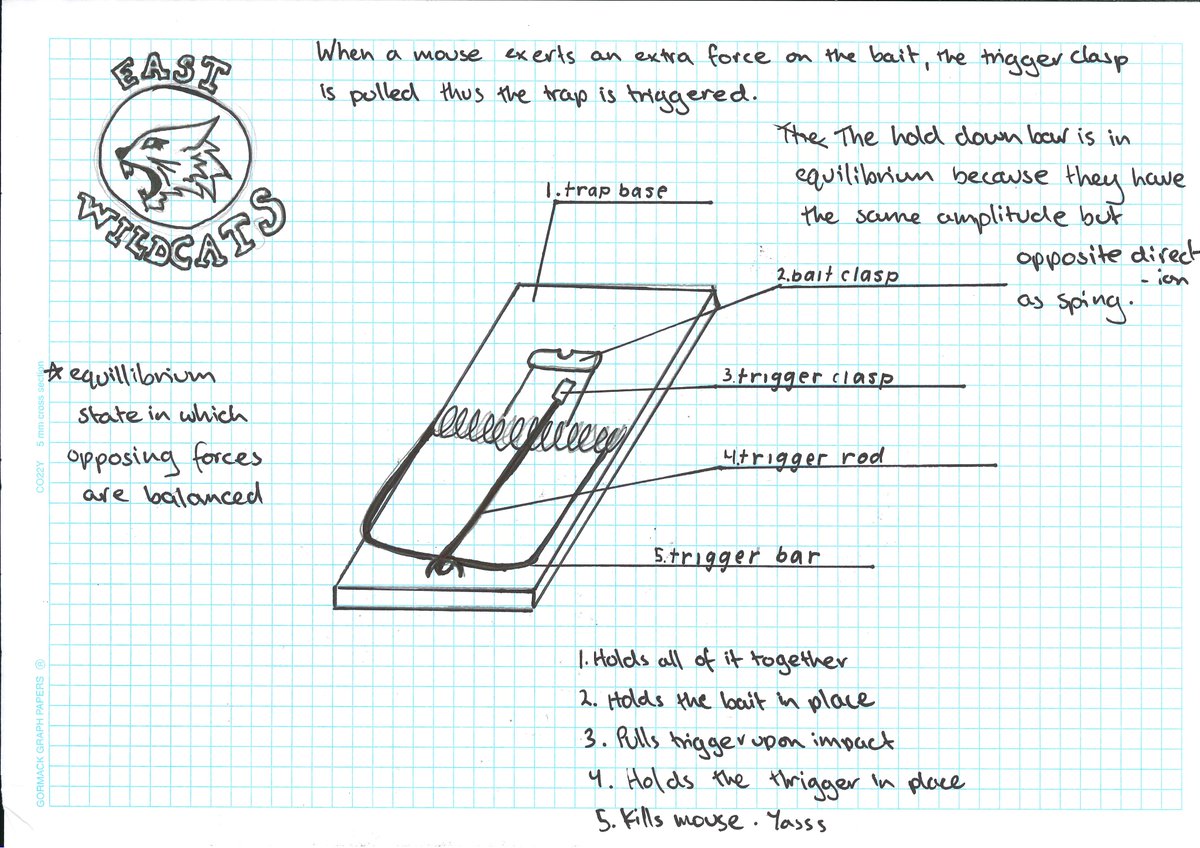 EAST
WILDCATS
When a mouse exerts an extra force on the bait, the trigger clasp
is pulled thus the trap is triggered.
The The hold down bar is in
equilibrium because they have
the same amplitude but
opposite direct
-ion
as sping.
1. trap base
2. bait clasp
3. trigger clasp
4. trigger rod
5. trigger bar
☆ equillibrium
state in which
opposing forces
are balanced
1. Holds all of it together
2. Holds the bait in place
3. Pulls trigger upon impact
4. Holds the thrigger in place
5. Kills mouse. Yasss
CO22Y 5 mm cross section
GORMACK GRAPH PAPERS ®